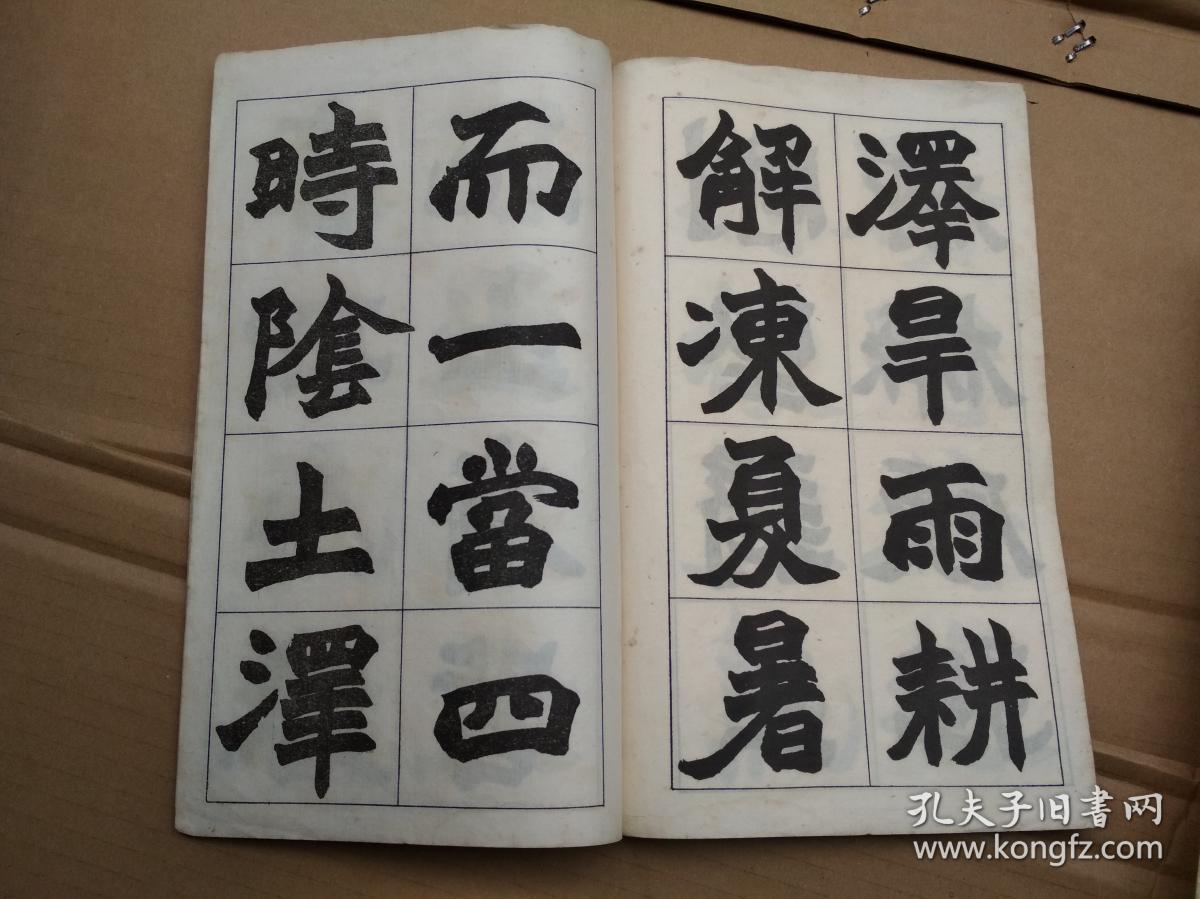 澤旱雨耕
解凍夏暑
而一當四
時陰土澤
孔夫子旧書网
www.kongfz.com